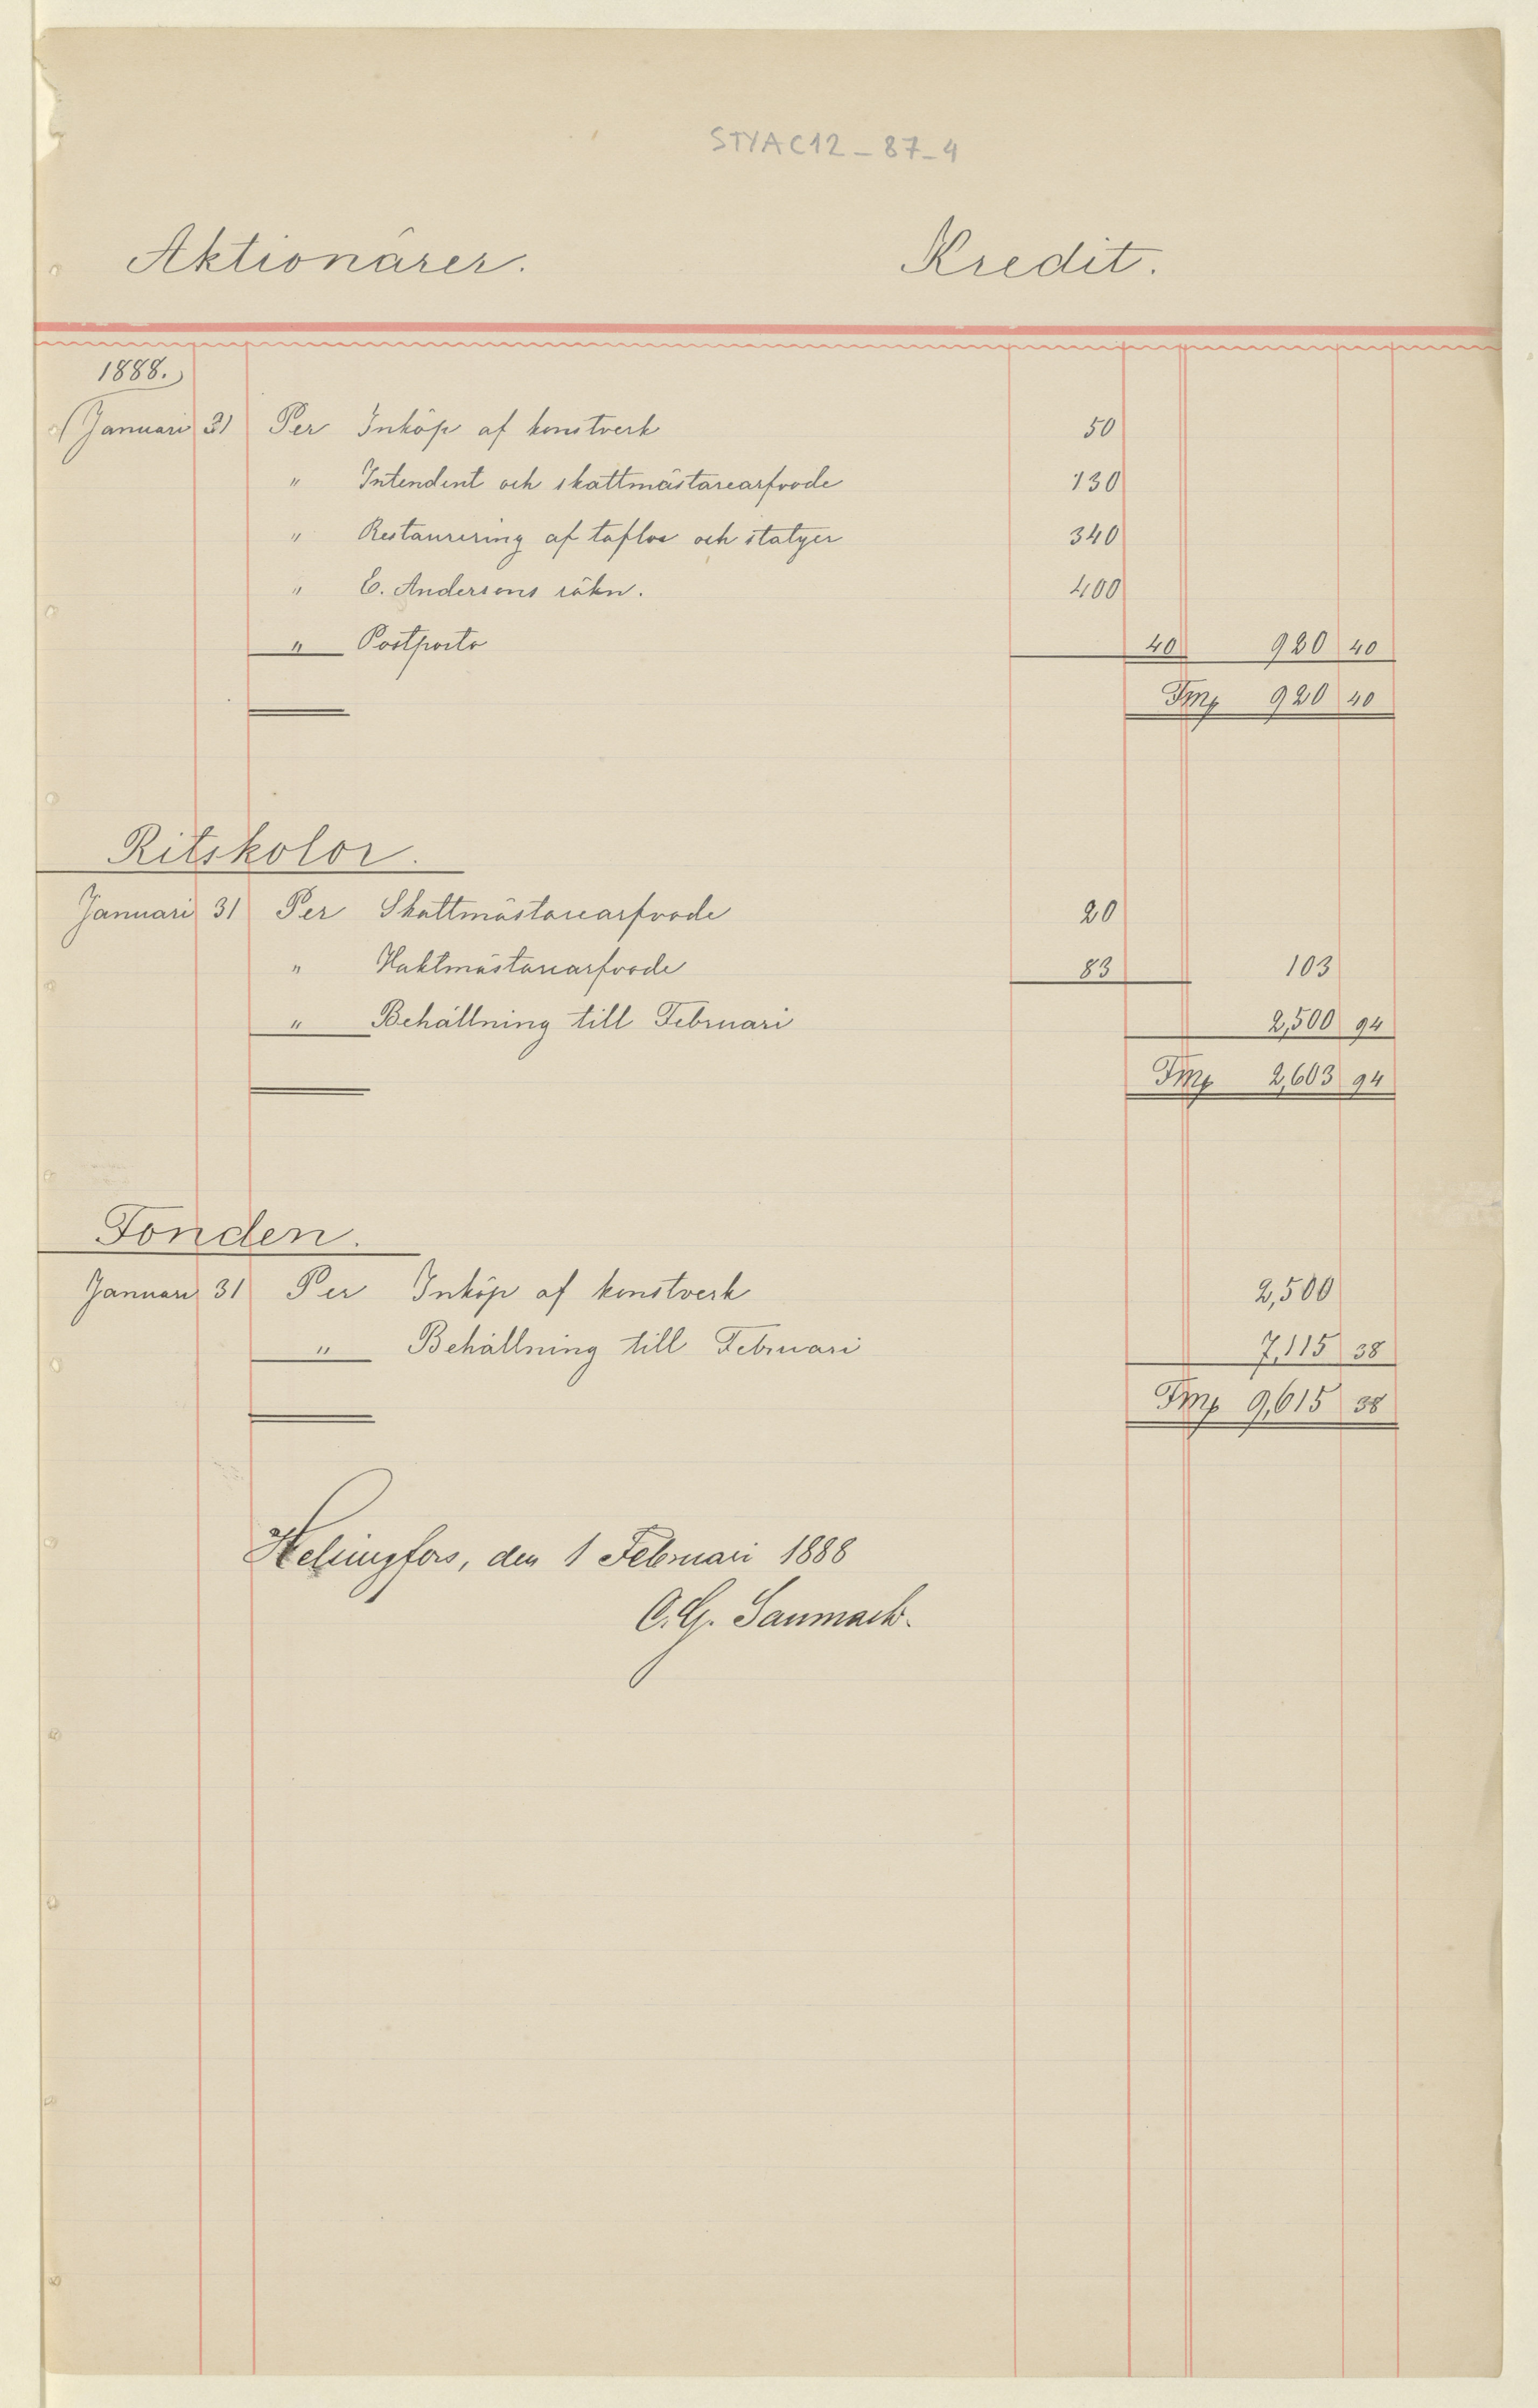 STYAC12_87_4
Aktionärer. Kredit.
1888.
Januari 31 Per Inköp af konstverk 50
" Intendent och skattmästarearfvode 130
" Restaurering af taflor och statyer 340
" E. Andersens räkn. 400
" Postporto 40 920 40
Fmk 920 40
Ritskolor.
Januari 31 Per Skattmästarearfvode 20
" Vaktmästarearfvode 83 103
" Behållning till Februari 2,500 94
Fmk 2,603 94
Fonden.
Januari 31 Per Inköp af konstverk 2,500
" Behållning till Februari 7,115 38
Fmk 9,615 38
Helsingfors, den 1 Februari 1888
C. G. Sanmark.